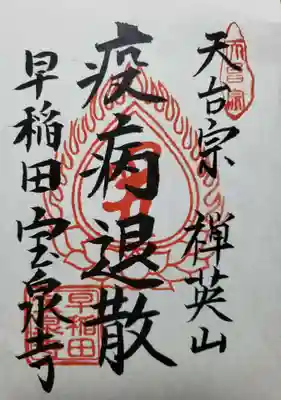 天台宗 禅英山
疫病退散
早稲田宝泉寺
天台宗
早稲田